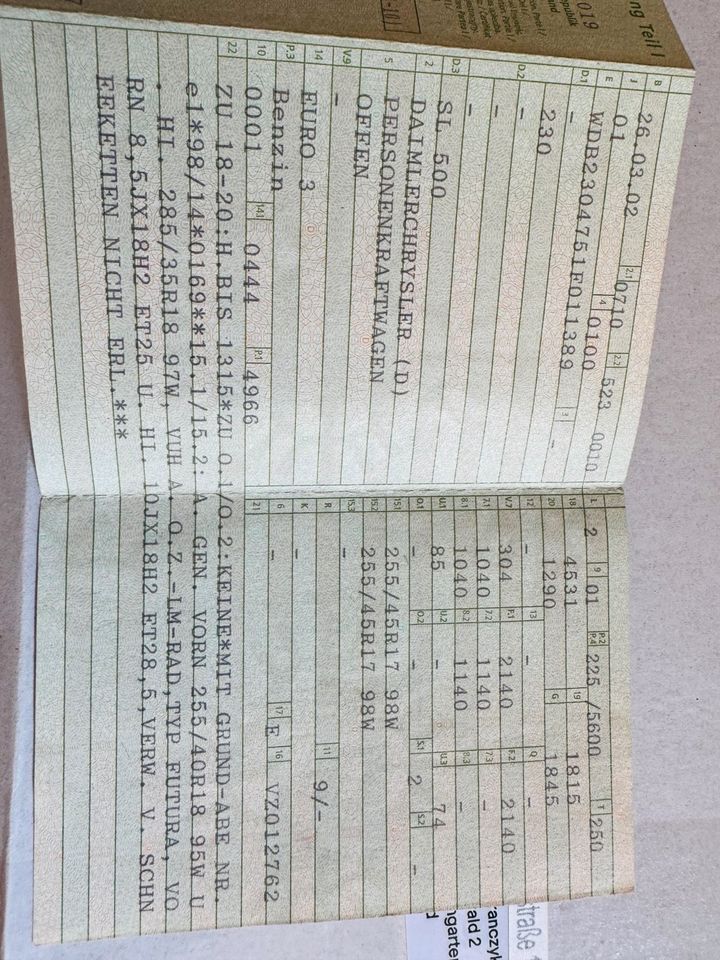 ng Teil I
B 26.03.02 2.1 0710 2.2 523 0010
J 01 4 0100
E WDB2304751F011389 3 -
D.1 -
230
D.2 -
-
-
D.3 SL 500
2 DAIMLERCHRYSLER (D)
5 PERSONENKRAFTWAGEN
OFFEN
V.9 -
14 EURO 3
P.3 Benzin
10 0001 14.1 0444 P.1 4966
L 2 9 01 P.2 P.4 225 /5600 T 250
18 4531 19 1815
20 1290 G 1845
12 - 13 - Q -
V.7 304 F.1 2140 F.2 2140
7.1 1040 7.2 1140 7.3 -
8.1 1040 8.2 1140 8.3 -
U.1 85 U.2 - U.3 74
O.1 - O.2 - S.1 2 S.2 -
15.1 255/45R17 98W
15.2 255/45R17 98W
15.3 -
R - 11 9/-
K -
6 - 17 E 16 VZ012762
21
22 ZU 18-20:H.BIS 1315*ZU O.1/O.2:KEINE*MIT GRUND-ABE NR.
e1*98/14*0169**15.1/15.2: A. GEN. VORN 255/40R18 95W U
. HI. 285/35R18 97W, VUH A. O.Z.-LM-RAD,TYP FUTURA, VO
RN 8,5JX18H2 ET25 U. HI. 10JX18H2 ET28,5,VERW. V. SCHN
EEKETTEN NICHT ERL.***
Straße
ald 2